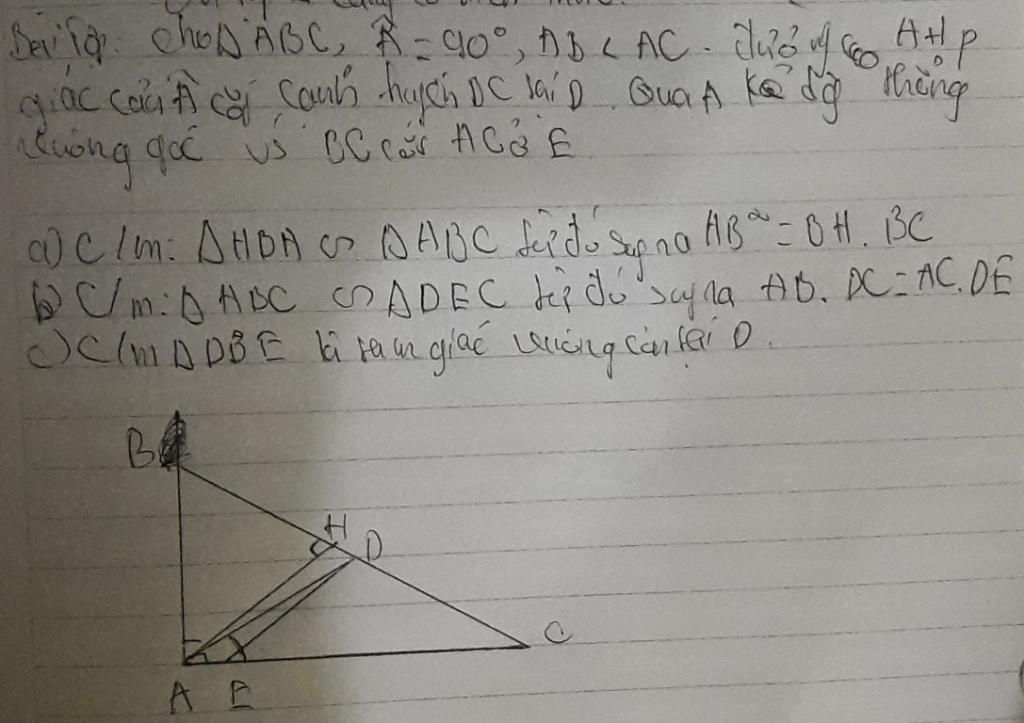 Bài 19: Cho Δ ABC, Â = 90°, AB < AC. đường cao AH p
giác của  cắt cạnh huyền BC tại D. Qua A kẻ đg thẳng
vuông góc vs BC cắt AC ở E
a) C/m: Δ HBA ∽ Δ ABC từ đó suy ra AB² = BH. BC
b) C/m: Δ ABC ∽ Δ DEC từ đó suy ra AB. DC = AC. DE
c) C/m Δ DBE là tam giác vuông cân tại D.
B
H
D
C
A E